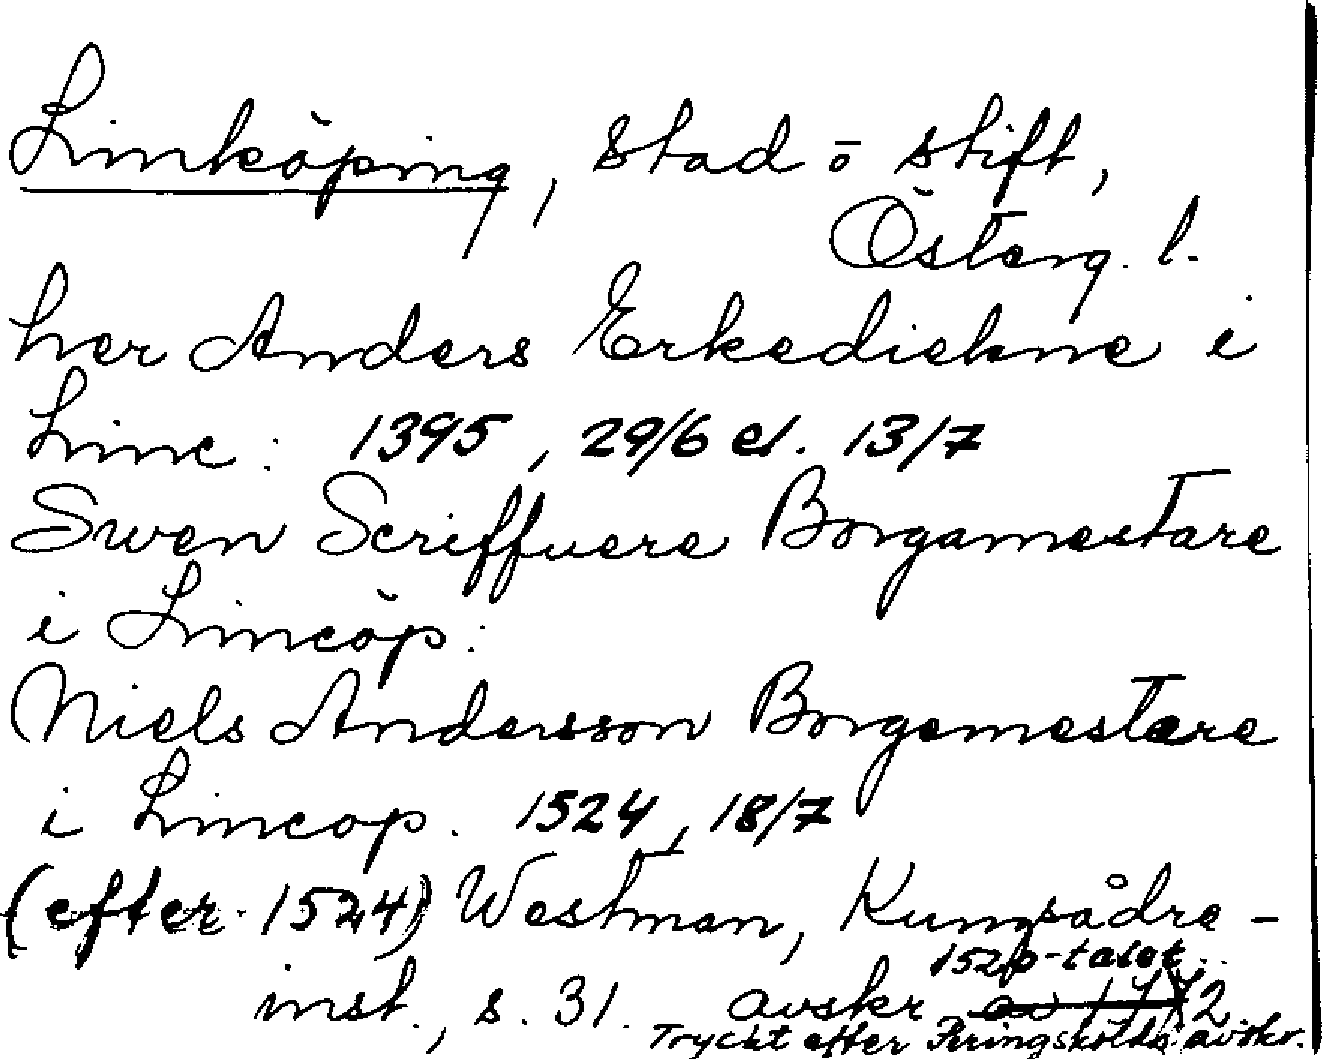 Linköping, stad o stift,
Österg. l.
her Anders Erkediekne i
Linc: 1395, 29/6 el. 13/7
Swen Scriffuere Borgamestare
i Lincöp:
Niels Andersson Borgemestare
i Lincop. 1524, 18/7
(efter 1524) Westman, Kungsådre-
1520-talet
inst., s. 31. avskr av 1772
Tryckt efter Peringskölds avskr.